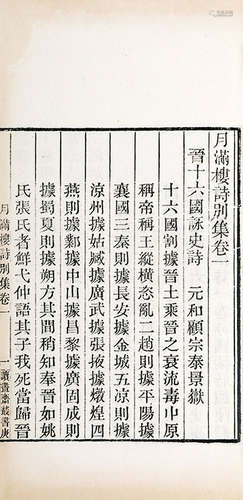 月滿樓詩別集卷一
晉十六國詠史詩 元和顧宗泰景嶽
十六國割據晉土乘晉之衰流毒中原
稱帝稱王縱橫恣亂二趙則據平陽據
襄國三秦則據長安據金城五涼則據
涼州據姑臧據廣武據張掖據燉煌四
燕則據鄴據中山據昌黎據廣固成則
據蜀夏則據朔方其間稍知奉晉如姚
氏張氏者鮮弋仲語其子我死當歸晉
月滿樓詩別集卷一 一 讀畫齋叢書庚